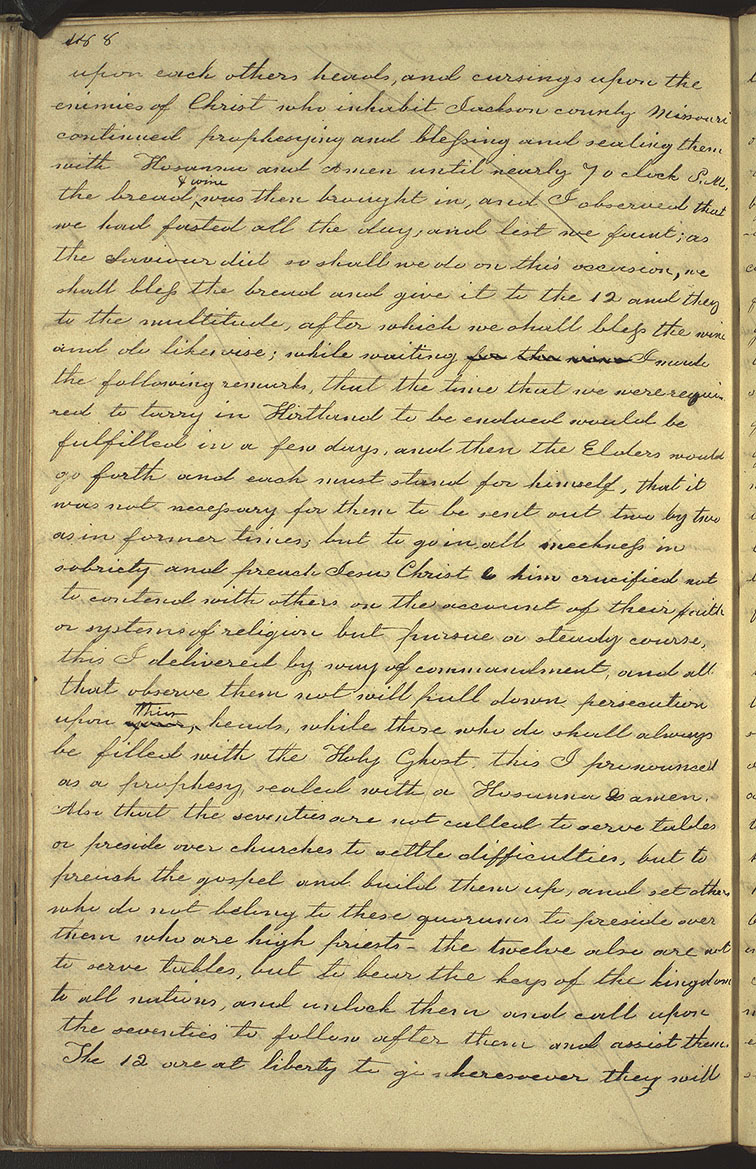 188
upon each others heads, and cursings upon the
enimies of Christ who inhabit Jackson county Missouri
continued prophesying and blessing and sealing them
with Hosanna and Amen until nearly 7 o clock P.M.
& wine
the bread was then brought in, and I observed that
we had fasted all the day; and lest we faint; as
the Saviour did so shall we do on this occasion, we
shall bless the bread and give it to the 12 and they
to the multitude, after which we shall bless the wine
and do likewise; while waiting for the wine I made
the following remarks, that the time that we were requi-
red to tarry in Kirtland to be endued would be
fulfilled in a few days, and then the Elders would
go forth and each must stand for himself, that it
was not necessary for them to be sent out two by two
as in former times; but to go in all meekness in
sobriety and preach Jesus Christ & him crucified not
to contend with others on the account of their faith
or systems of religion but pursue a steady course,
this I delivered by way of commandment, and all
that observe them not will pull down persecution
thier
upon heads, while those who do shall always
be filled with the Holy Ghost, this I pronounced
as a prophesy, sealed with a Hosanna & amen.
Also that the seventies are not called to serve tables
or preside over churches to settle difficulties, but to
preach the gospel and build them up, and set others
who do not belong to these quorums to preside over
them who are high priests - the twelve also are not
to serve tables, but to bear the keys of the kingdom
to all nations, and unlock them and call upon
the seventies to follow after them and assist them.
The 12 are at liberty to go wheresoever they will